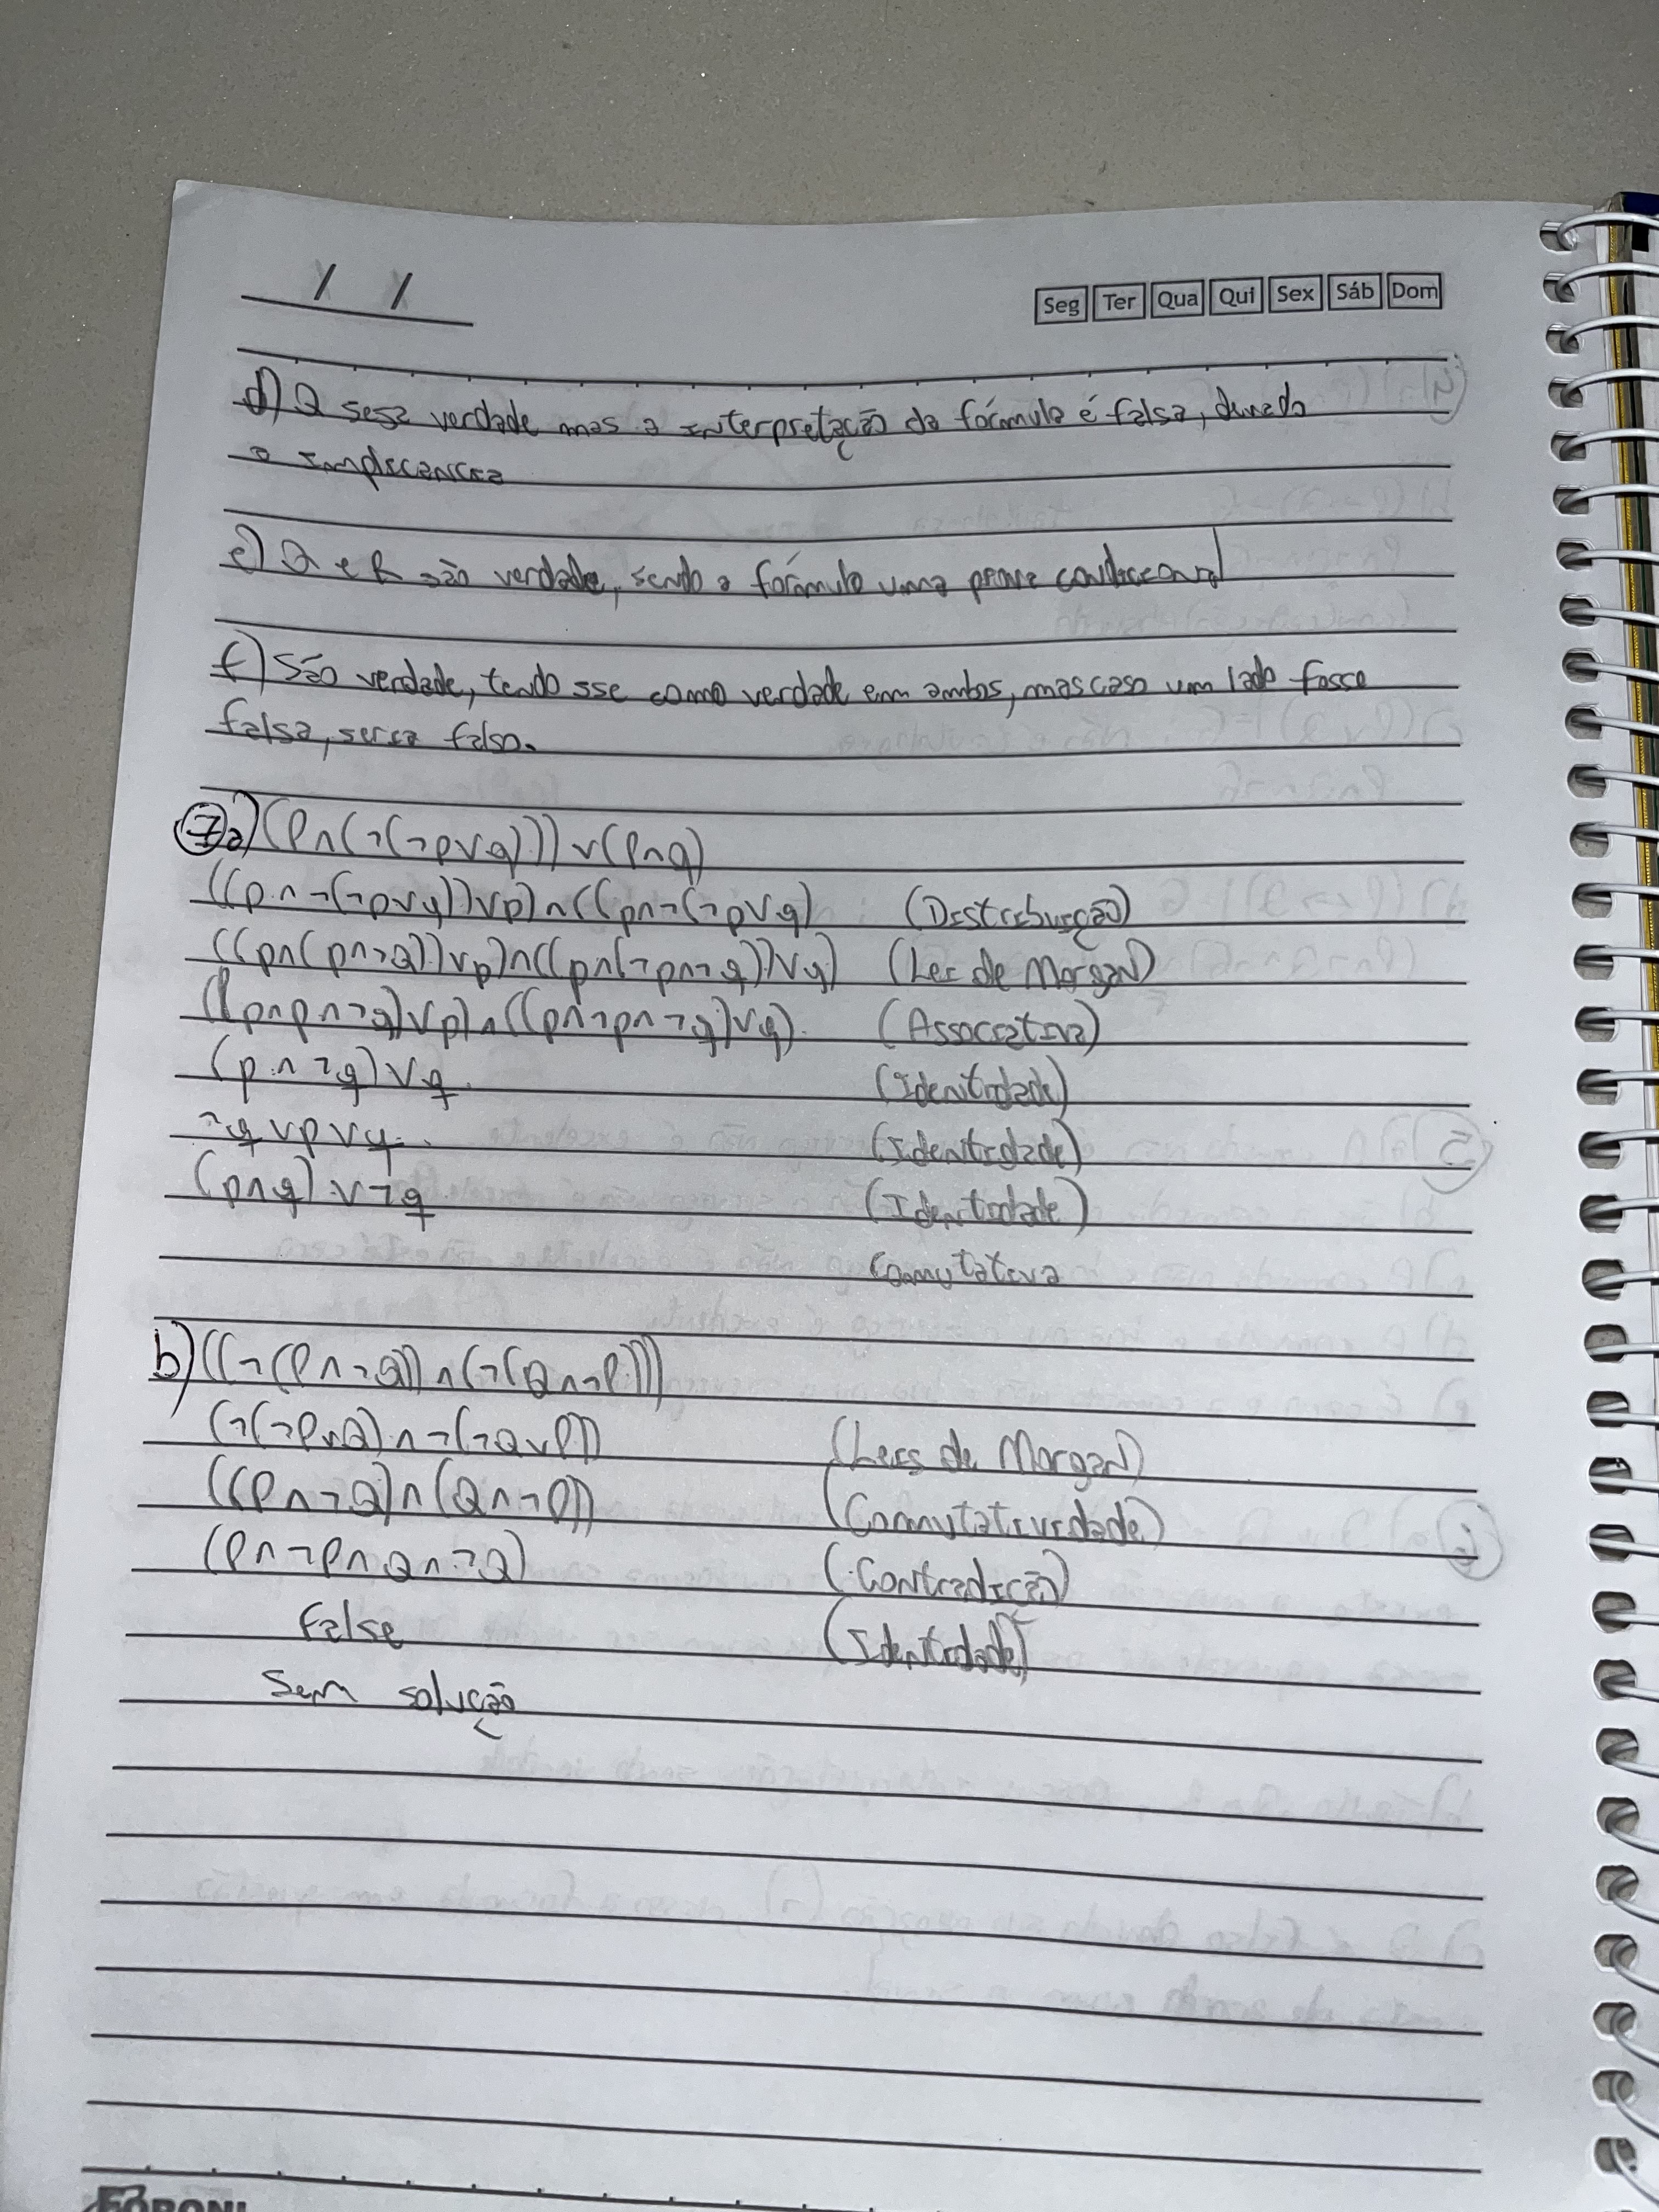 / /
Seg Ter Qua Qui Sex Sáb Dom
d) Q seja verdade mas a interpretação da fórmula é falsa, devado
a implicancia
e) Q e R são verdade, sendo a fórmula uma prova condicional
f) São verdade, tendo sse como verdade em ambos, mas caso um lado fosse
falsa, seria falso.
7 a) (P∧(¬(¬p∨q))) ∨ (P∧q)
((p∧¬(¬p∨q))∨p)∧((p∧¬(¬p∨q) (Distribuição)
((p∧(p∧¬Q))∨p)∧((p∧(¬p∧¬q))∨q) (Lei de Morgan)
((p∧p∧¬q)∨p)∧((p∧¬p∧¬q)∨q). (Associativa)
(p∧¬q)∨q. (Identidade)
¬q∨p∨q. (Identidade)
(p∧q)∨¬q (Identidade)
Comutativa
b) ((¬(P∧¬Q))∧(¬(Q∧¬P)))
(¬(¬P∨Q)∧¬(¬Q∨P)) (Leis de Morgan)
((P∧¬Q)∧(Q∧¬P)) (Comutatividade)
(P∧¬P∧Q∧¬Q) (Contradição)
False (Identidade)
Sem solução
FORONI